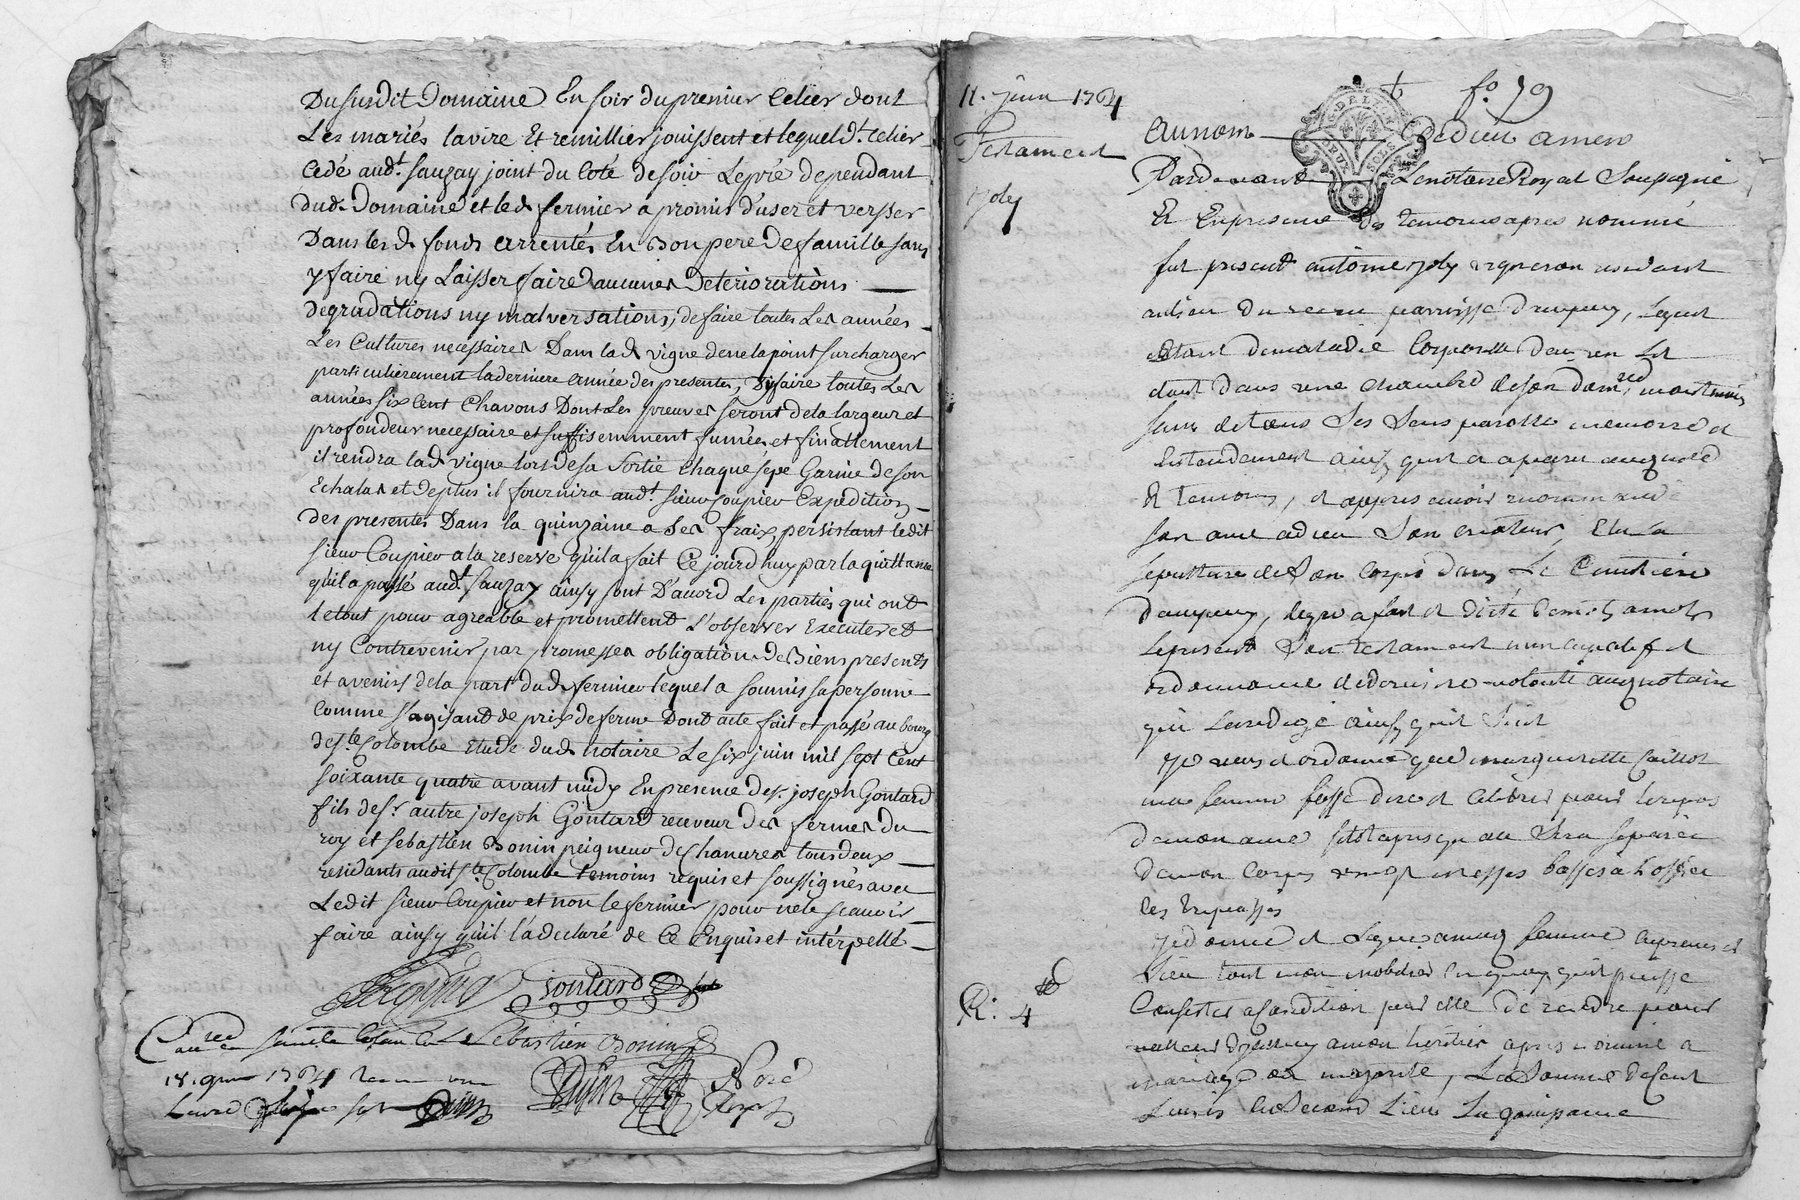 Du susdit Domaine En soir du premier Celier dont
Les mariés lavire Et remillier jouissent et lequel dt. Celier
Cedé audt. sauzay joint du Coté de soir Le pré dependant
dud. Domaine et led. fermier a promis d'user et versser
Dans les d. fonds arrentés En Bon pere de famille sans
y faire ny Laisser faire aucunes Deteriorations
degradations ny malversations, de faire toutes Les années
Les Cultures necessaires Dans lad. vigne de ne la point surcharger
particulierement la derniere année des presentes, d'y faire toutes Les
années six Cent Chavons Dont Les preuves seront de la largeur et
profondeur necessaire et suffisemment fumées et finallement
il rendra lad. vigne lors de sa Sortie Chaque sepe Garnie de son
Echalas et de plus il fournira audt. sieur Coupier Expedition
des presentes Dans la quinzaine a Ses fraix, persistant ledit
sieur Coupier a la reserve qu'il a fait Ce jourd'huy par la quittance
qu'il a passé audt. sauzay ainsy sont D'acord Les parties qui ont
le tout pour agreable et promettent L'observer Executer et
ny Contrevenir par promesses obligations de Biens presents
et avenirs de la part dud. fermier lequel a soumis sa personne
Comme s'agisant de prix de ferme Dont acte fait et passé au bourg
de ste Colombe Etude dud. notaire Le six juin mil sept Cent
soixante quatre avant midy En presence de sr. joseph Gontard
fils de sr. autre joseph Gontard receveur des fermes du
roy et sebastien Bonin peigneur de Chanvres tous deux
residants audit ste Colombe temoins requis et soussignés avec
Ledit sieur Coupier et non le fermier pour ne le scavoir
faire ainsy qu'il l'a declaré de Ce Enquis et interpellé
Gontard
Sebastien Bonin
18. 1764
11. juin 1764
Testament
joly
R: 4 ₶
fo. 79
au nom de dieu amen
Pardevant Le notaire Royal Soussigné
Et En presence des temoins apres nommé
fut present antoine joly vigneron residant
au lieu du parroisse d'ampuis, Lequel
estant de maladie Corporelle dans un Lit
dans une chambre de son dom
sain de tous Ses Sens parolle memoire et
Entendement ainsy qu'il a aparu
Et temoins, et appres avoir recommandé
son ame a dieu Son createur, Elu la
sepulture de Son Corps dans Le Cimetiere
d'ampuis, de gré a fait et dicté
Le present Son testament nuncupatif et
ordonnance de derniere volonté notaire
qui L'a redigé ainsy qu'il Suit
Je veux et ordonne que margueritte Caillot
ma femme fasse dire et Celebrer pour le repos
de mon ame sitot apres qu'elle Sera separée
de mon Corps messes basses a l'office
des trepassés
Je donne et Legue a maditte femme
Lieu tout mon mobilier En quoy qu'il puisse
Consister a Condition par elle de rendre pour
a mon heritier apres nommé a
mariage ou majorité, La Somme de Cent
Livres